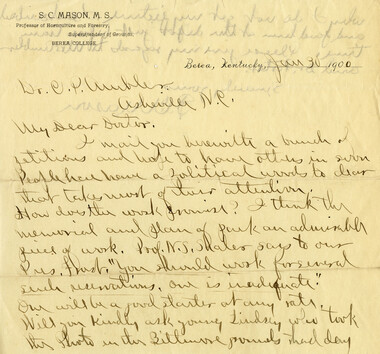 S. C. MASON, M. S.
Professor of Horticulture and Forestry,
Superintendent of Gardens,
BEREA COLLEGE.
Berea, Kentucky, Jan 30 1900
Dr. C. P. Ambler
Asheville N.C.
My Dear Doctor.
I mail you herewith a bunch of
petitions and hope to have others in soon
People here have a Political woods to clear
that takes most of their attention.
How does the work promise? I think the
memorial and plan of park an admirable
piece of work. Prof. N.S. Shaler says to our
Pres. Frost. "You should work for several
such reservations, one is inadequate."
Our will be a good starter at any rate.
Will you kindly ask young Lindsey who took
the photo in the Biltmore grounds that day